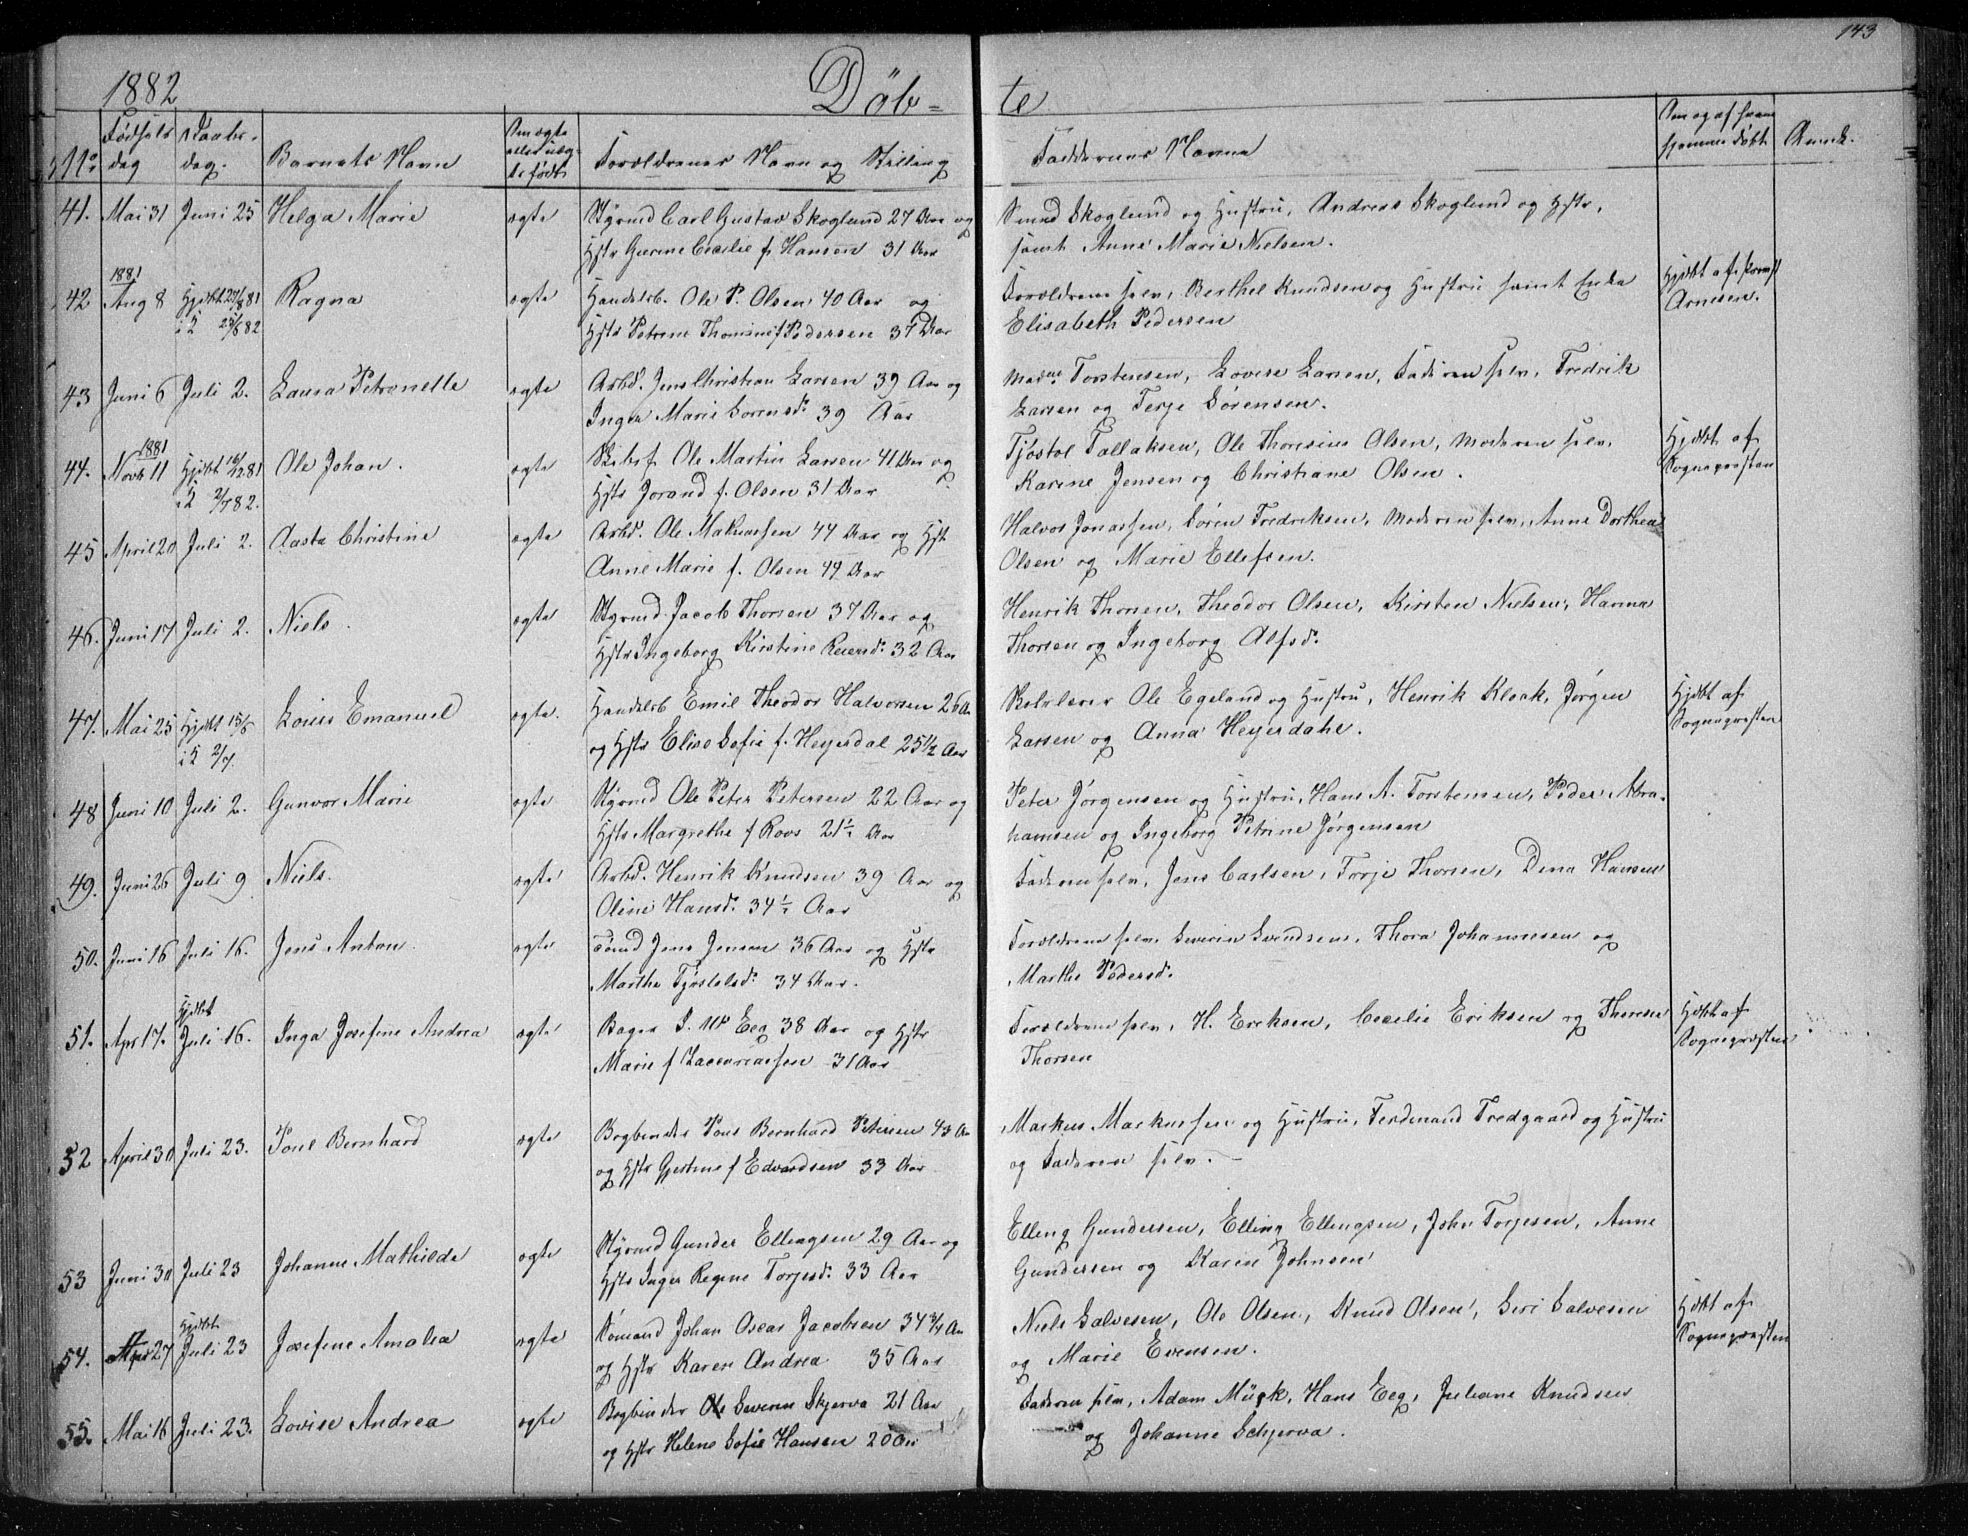 143
1882 Døb- te
No Fødsels dag Daabs- dag. Barnets Navn Om ægte eller uæg- te født Forældrenes Navn og Stilling Faddernes Navne Anmk.
41. Mai 31 Juni 25 Helga Marie ægte Styrmd Carl Gustav Skoglund 27 Aar og Skoglund og Hustru, Andreas Skoglund og Hstr,
Hstr Cecilie f. Hansen 31 Aar samt Anne Marie Nielsen.
1881
42 Aug 8 Hjdbt 27/8 81 Ragna ægte Handelsb. Ole P. Olsen 40 Aar og Forældrene selv, Berthel Knudsen og Hustru samt Enke Hjdbt af
i K 82 Hstr Petrine f Pedersen 37 Aar Elisabeth Pedersen Arnesen.
43 Juni 6 Juli 2. Laura Petronelle ægte Arbd. Jens Christian Larsen 39 Aar og Torstensen, Lovise Larsen, Faderen selv, Fredrik
Inger Marie Sørensd. 39 Aar Larsen og Terje Sørensen.
1881
44. Novb 11 Hjdbt 81 Ole Johan. ægte Skibsf. Ole Martin Larsen 41 Aar og Tjøstol Tallaksen, Ole Thoresius Olsen, Moderen selv, Hjdbt af
i K 2/7 82. Hstr Jorand f. Olsen 31 Aar Karine Jensen og Christiane Olsen. Sognepresten
45 April 20 Juli 2. Aasta Christine ægte Arbd. Ole 44 Aar og Hst Halvor Jonassen, Søren Fredriksen, Moderen selv, Anne Dorthea
Anne Marie f. Olsen 49 Aar Olsen og Marie Ellefsen.
46. Juni 17 Juli 2. Niels. ægte Styrmd. Jacob Thorsen 37 Aar og Henrik Thorsen, Theodor Olsen, Kirsten Nielsen, Hanna
Hstr Ingeborg Kirstine 32 Aar Thorsen og Ingeborg Alfsd.
47. Mai 25 Hjdbt Louis Emanuel ægte. Handelsb Emil Theodor Halvorsen 26 A Ole Egeland og Hustru, Henrik Kloak, Jørgen Hjdbt af
i K 2/7. og Hstr Elise Sofie f. Heyerdal 25 1/2 Aar Larsen og Anna Heyerdahl. Sognepresten
48 Juni 10 Juli 2. Gunvor Marie ægte Styrmd Ole Peter Petersen 22 Aar og Peter Jørgensen og Hustru, Hans A. Torstensen, Peder Abra-
Hstr Margrethe f Roos 21 1/2 Aar hamsen og Ingeborg Petrine Jørgensen
49. Juni 26 Juli 9 Niels. ægte Arbd. Henrik Knudsen 39 Aar og Faderen selv, Jens Carlsen, Torje Thorsen, Dina Hansen
Oline Hansd. 34 1/2 Aar
50. Juni 16 Juli 16. Jens Anton. ægte Sømd Jens Jensen 36 Aar og Hstr Forældrene selv. Severin Svendsen, Thora Johannesen og
Marthe Tjøstolsd. 34 Aar. Marthe Pedersd.
Hjdbt
51. Apr 17. Juli 16. Inga Josefine Andrea ægte Bager Eeg 38 Aar og Hstr Forældrene selv, H. Eriksen, Cecilie Eriksen og Therese Hjdbt af
Marie f Zaccariassen 31 Aar Thorsen Sognepresten
52 April 30 Juli 23. Poul Bernhard ægte Bogbinder Poul Bernhard Petersen 43 Aa Markus Markussen og Hustru, Ferdinand Tredgaard og Hustru
og Hstr Gjertine f Edvardsen 33 Aar og Faderen selv.
53 Juni 30 Juli 23 Johanne Mathilde ægte Styrmd Gunder Ellengsen 29 Aar og Elleng Gundersen, Elling Ellengsen, John Torjesen, Anne
Hstr Inger Regine Torjesd. 33 Aar Gundersen og Karen Johnsen
Hjdbt
54. Apr 27 Juli 23 Josefine Amalia ægte Sømand Johan Oscar Jacobsen 34 3/4 Aa Niels Salvesen, Ole Olsen, Knud Olsen, Siri Salvesen Hjdbt af
og Hstr Karen Andrea 35 Aar og Marie Evensen. Sognepresten
55. Mai 16 Juli 23. Lovise Andrea ægte Bogbinder Ole Severin Skjerva 21 Aar Faderen selv, Adam Mück, Hans Eeg, Juliane Knudsen
og Hstr Helene Sofie Hansen 20 Aar og Johanne Schjerva.